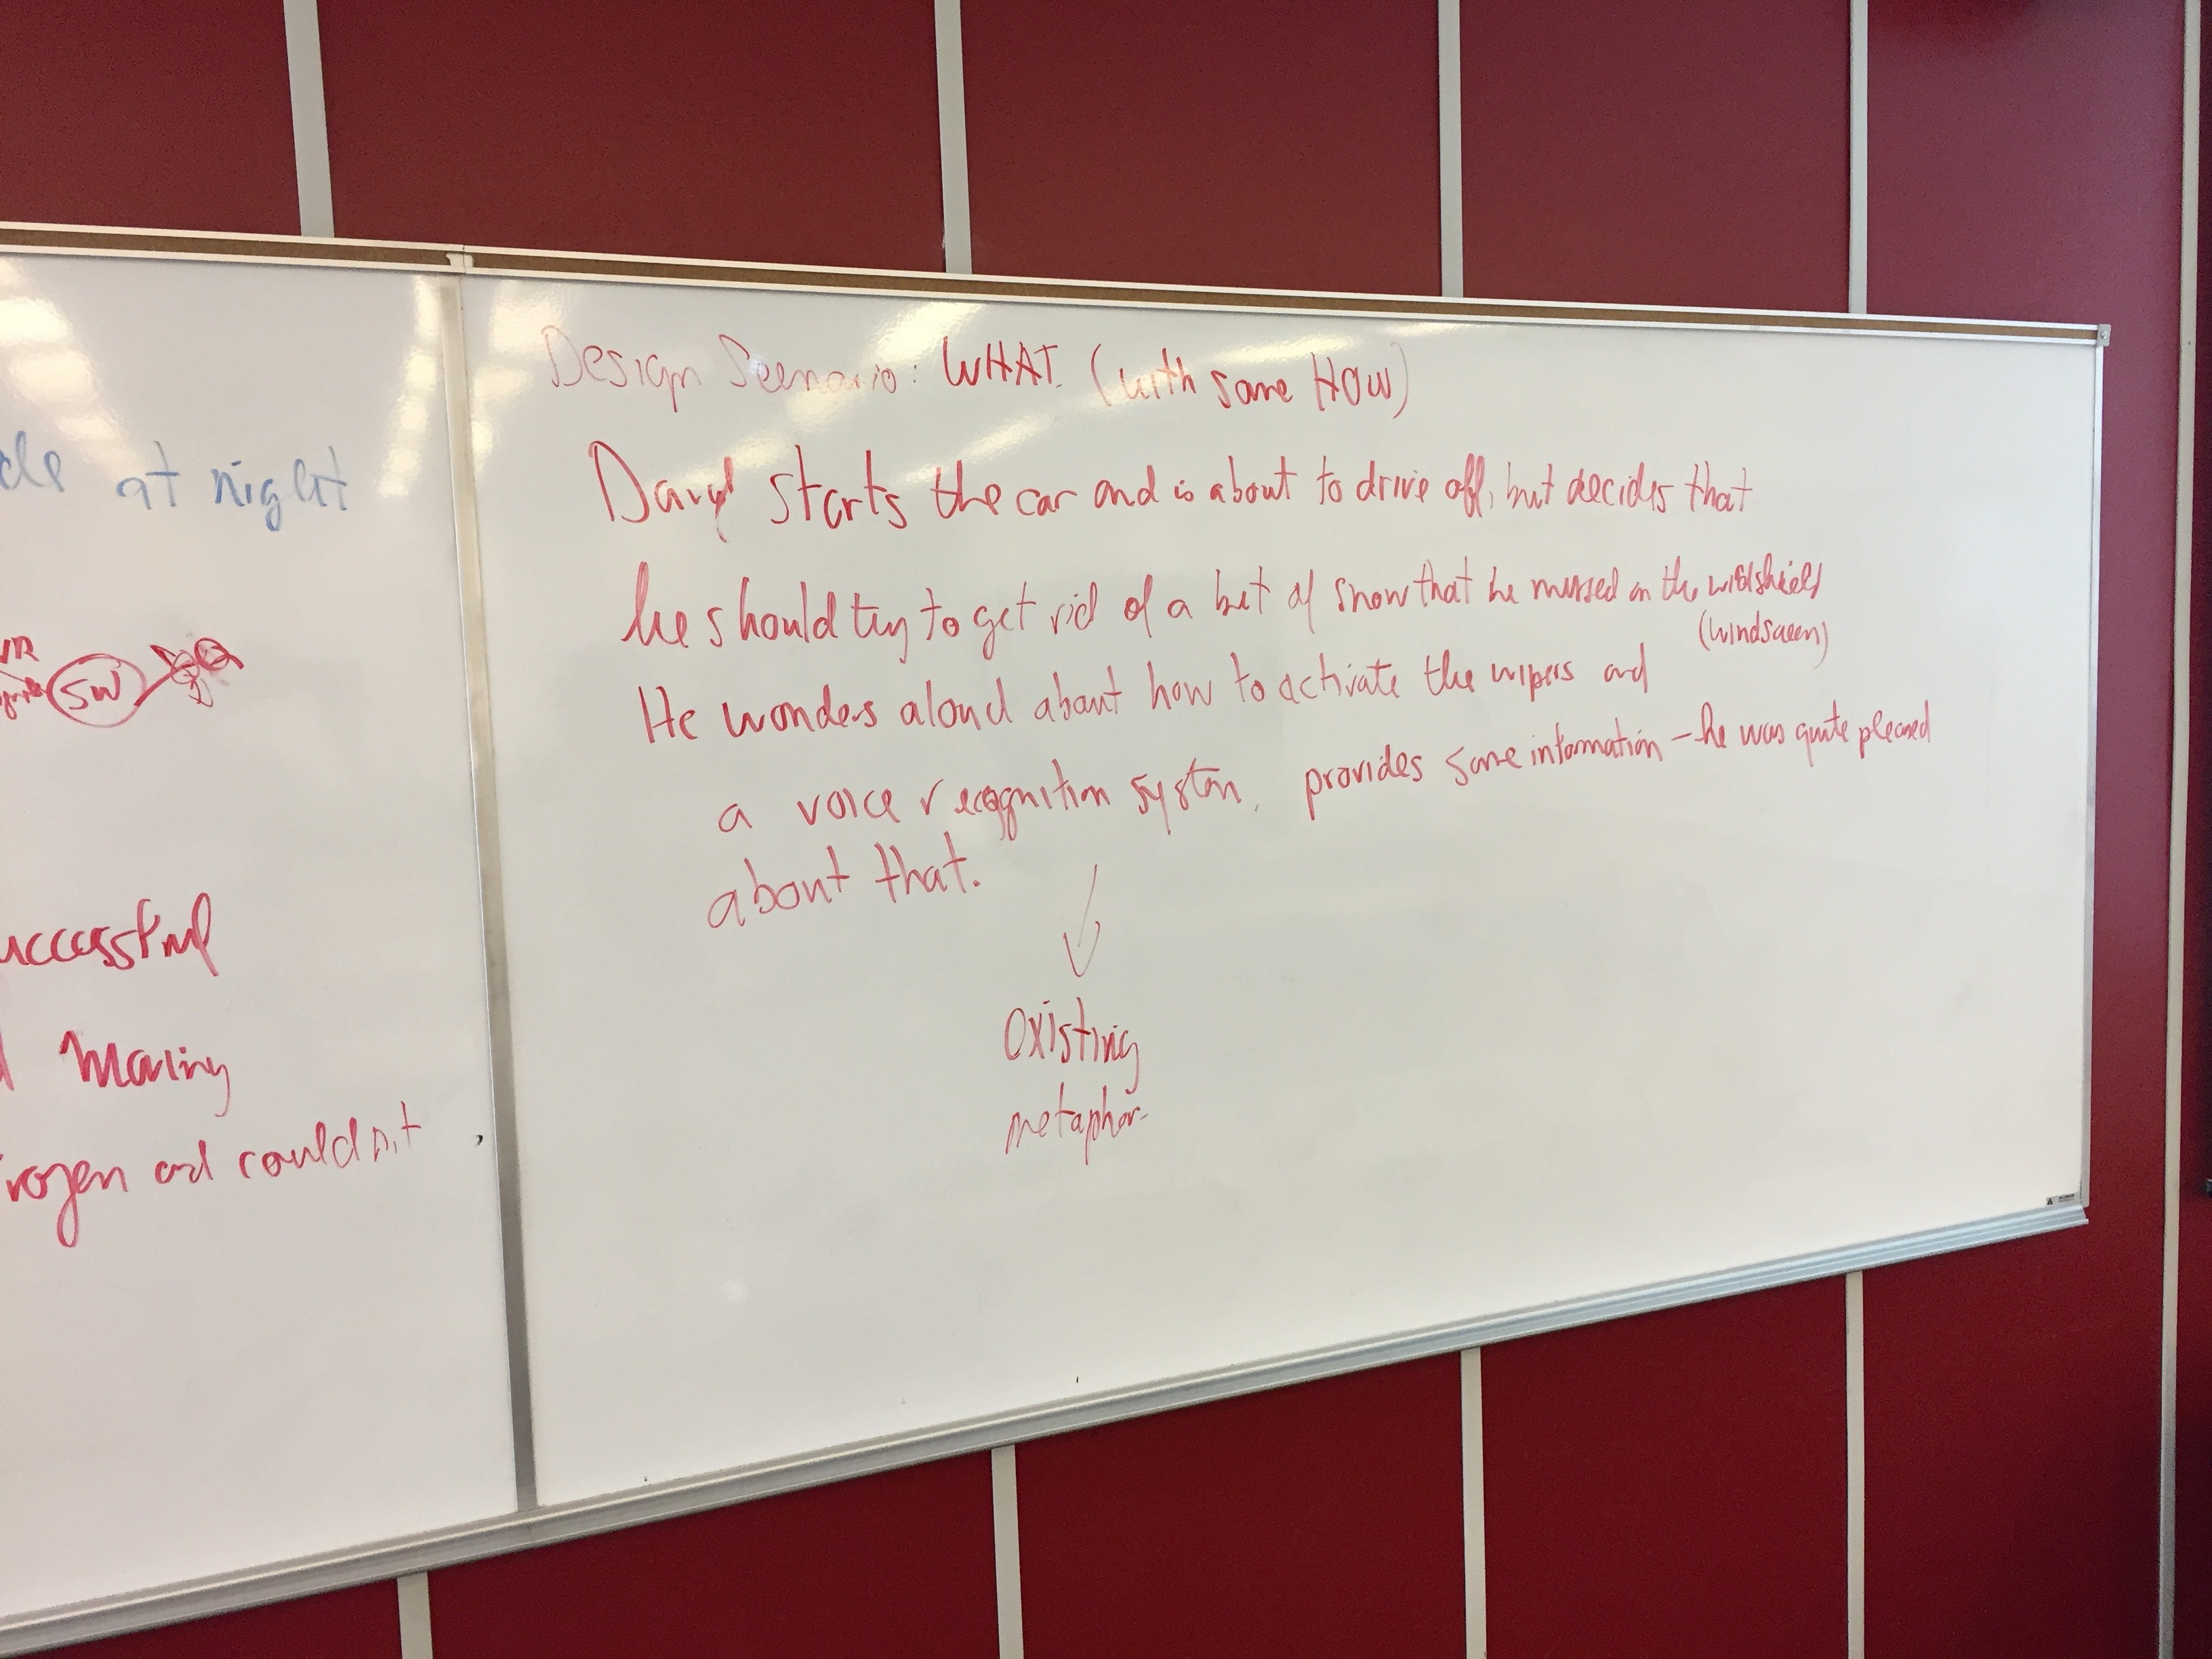 at night
SW
Design Scenario: WHAT. (with some HOW)
Daryl starts the car and is about to drive off, but decides that
he should try to get rid of a bit of snow that he missed on the windshield
(windscreen)
He wonders aloud about how to activate the wipers and
a voice recognition system, provides some information - he was quite pleased
about that.
existing
metaphor
uccessful
rozen and couldn't